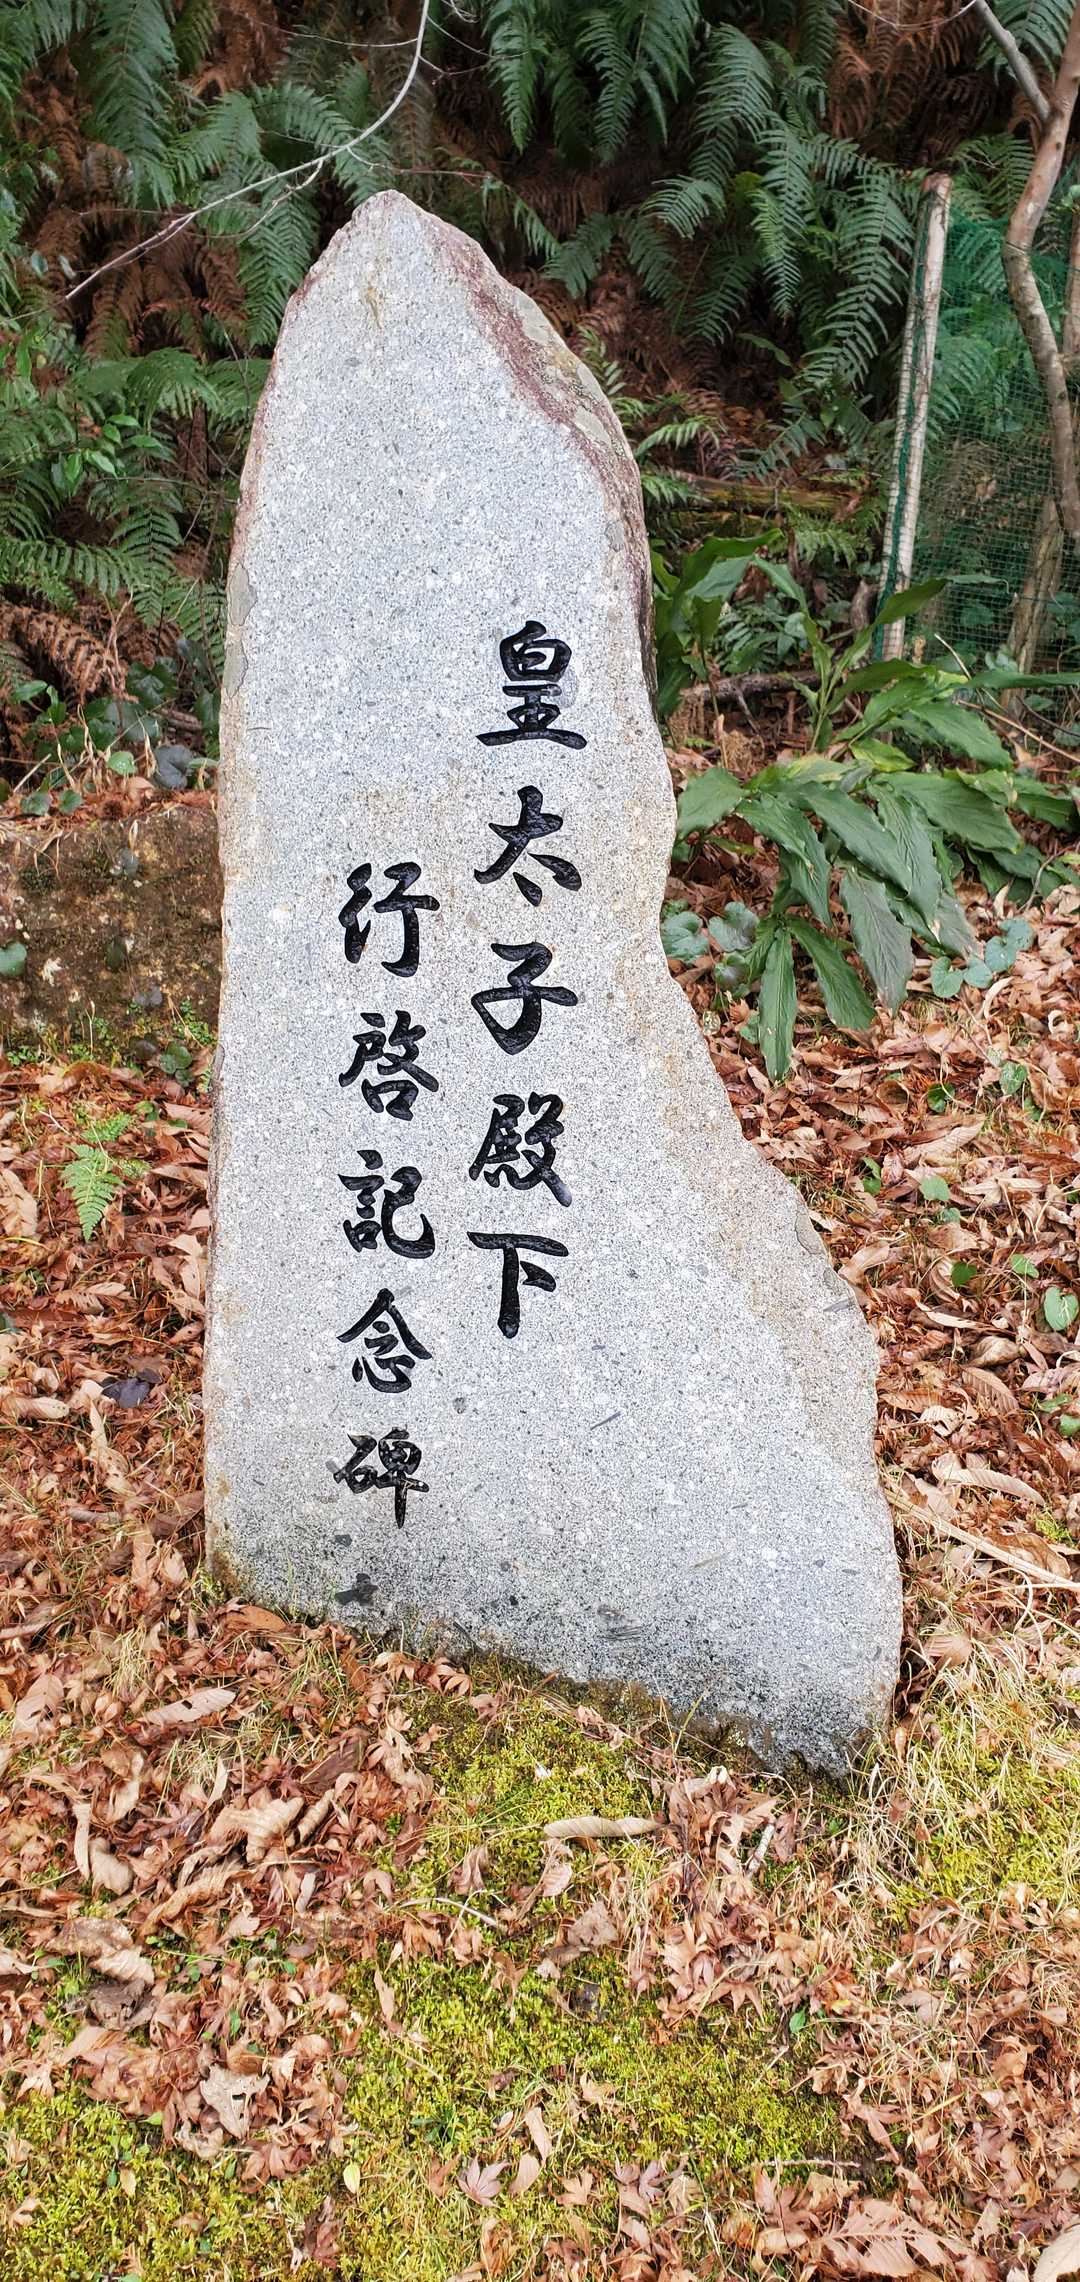 皇太子殿下
行啓記念碑